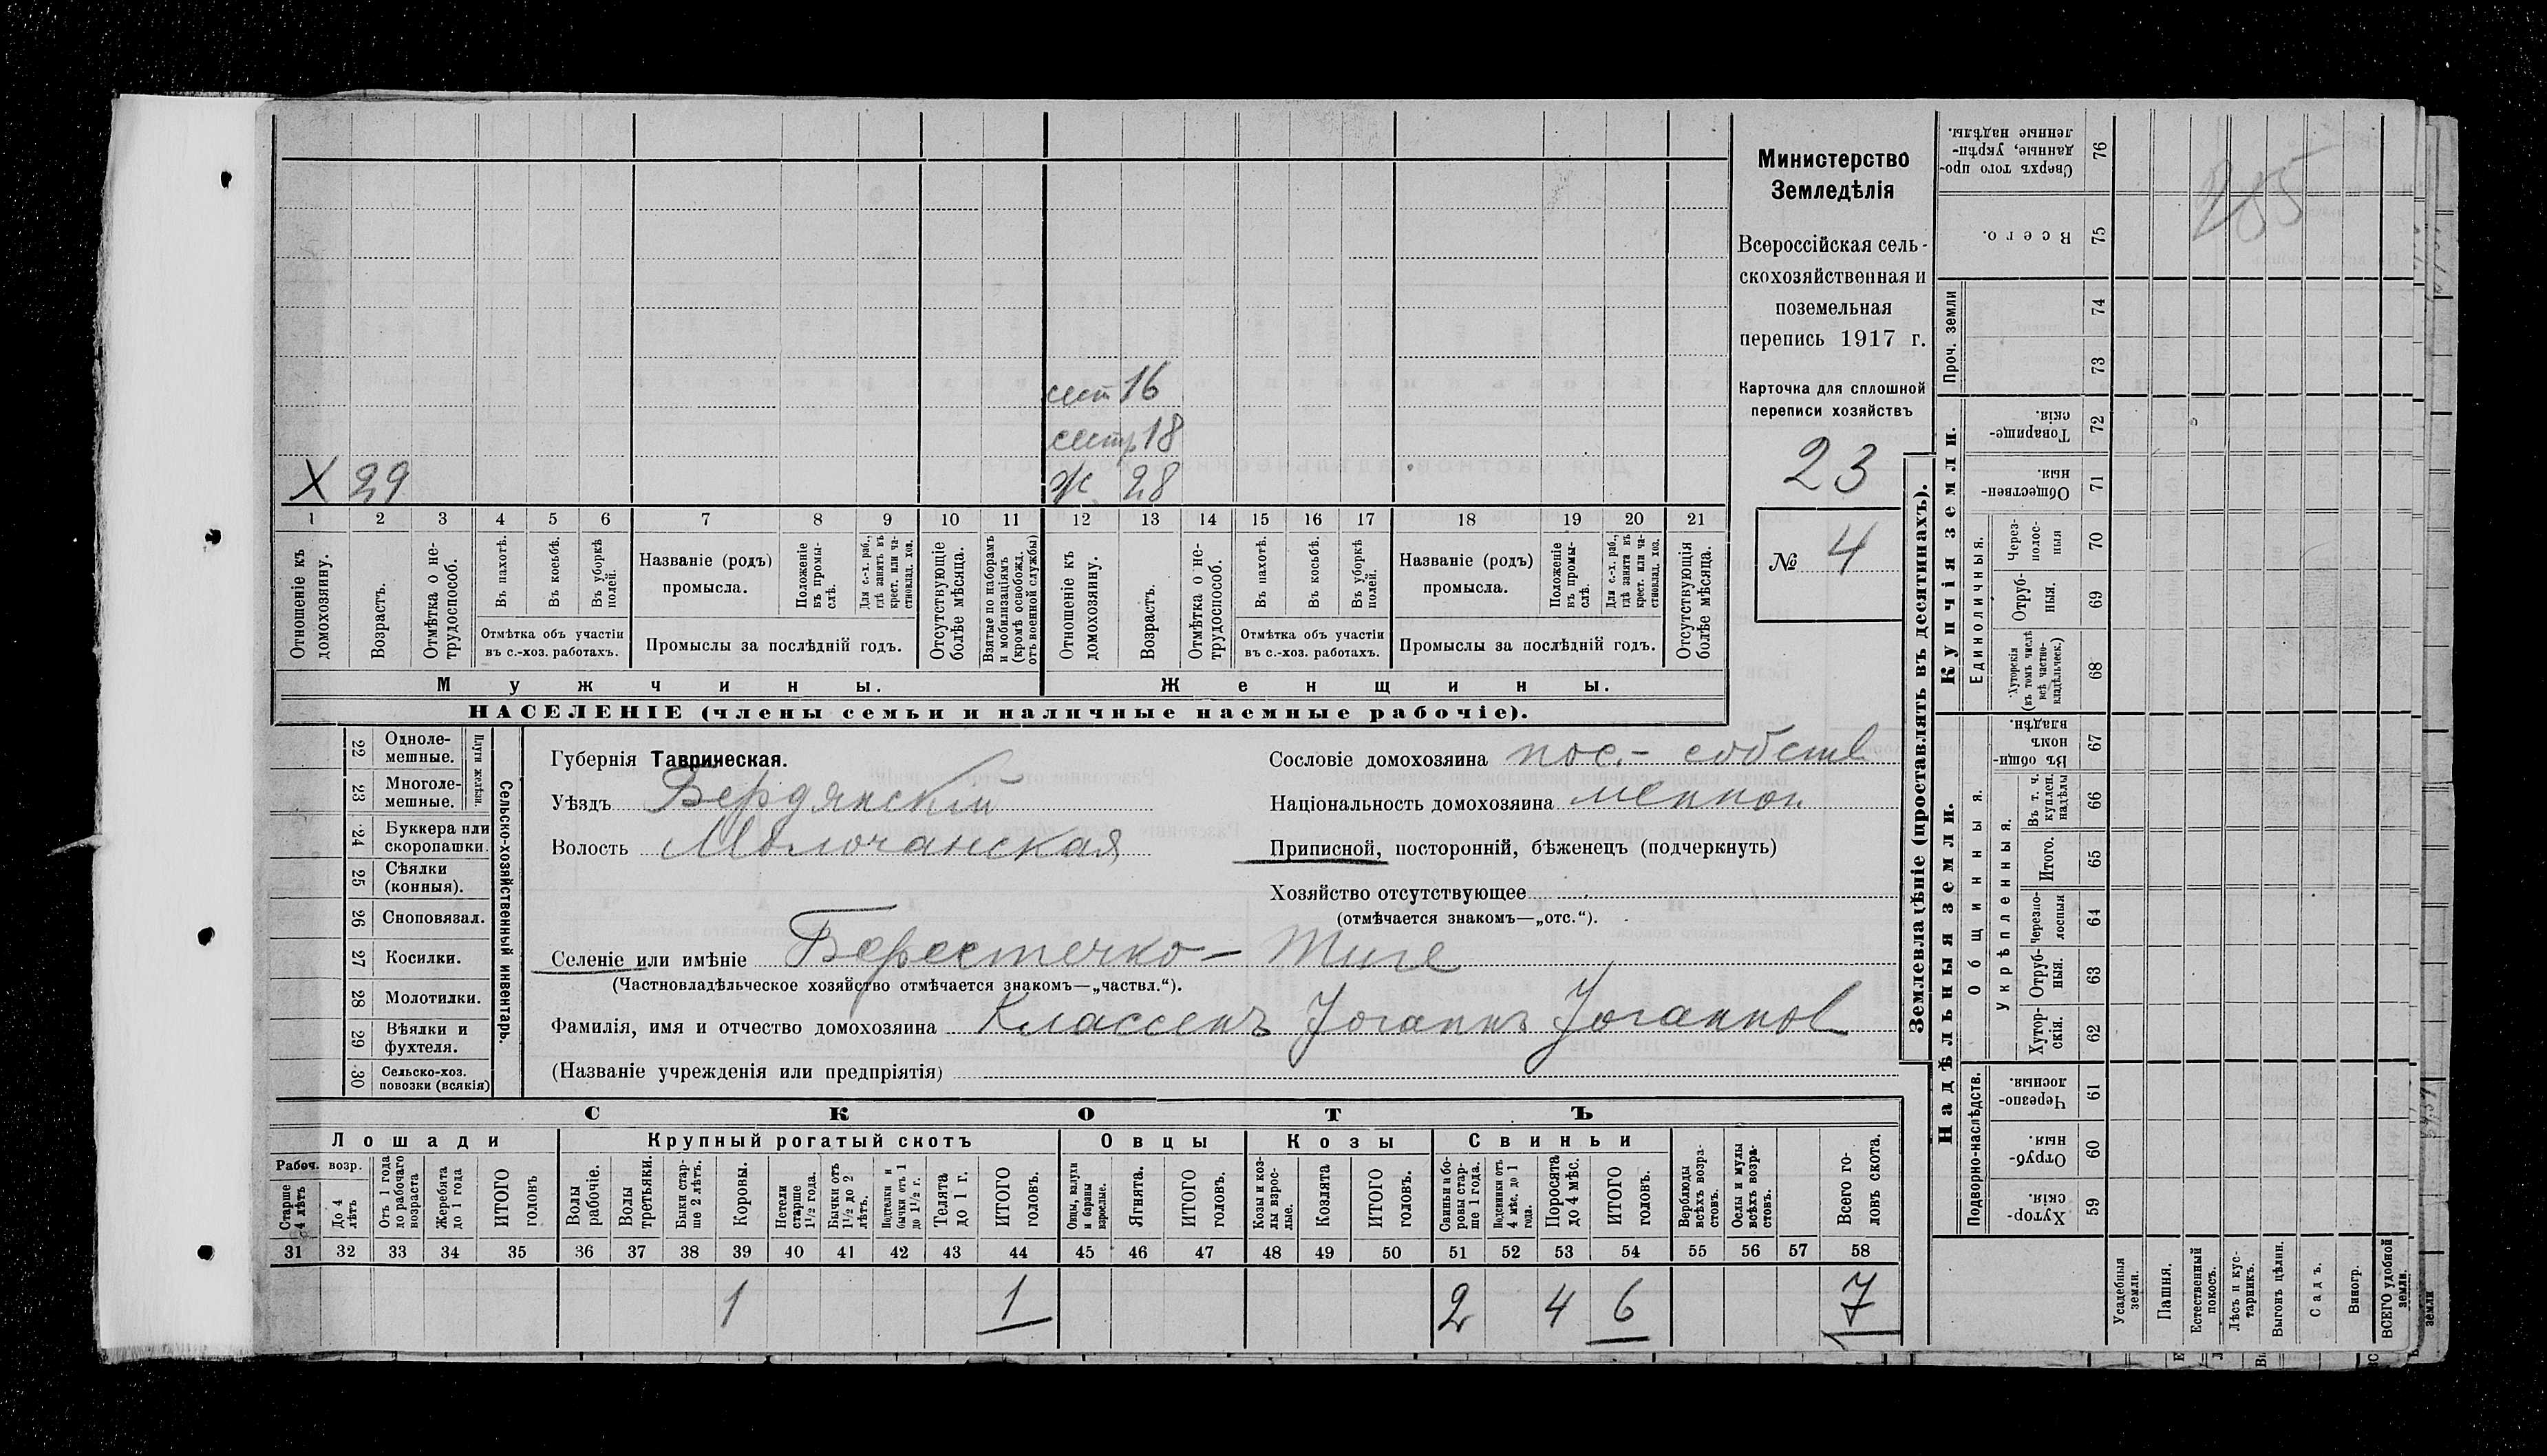 сест 16
сестр 18
Х 29
ж 28
1 2 3 4 5 6 7 8 9 10 11 12 13 14 15 16 17 18 19 20 21
Отношеніе къ домохозяину.
Возрастъ.
Отмѣтка о не-
трудоспособ.
Въ пахотѣ.
Въ косьбѣ.
Въ уборкѣ
полей.
Отмѣтка объ участіи
въ с.-хоз. работахъ.
Названіе (родъ)
промысла.
Положеніе
въ промы-
слѣ.
Для с.-х. раб.,
гдѣ занятъ въ
крест. или ча-
стновлад. хоз.
Промыслы за послѣдній годъ.
Отсутствующіе
болѣе мѣсяца.
Взятые по наборамъ
и мобилизаціямъ
(кромѣ освобожд.
отъ военной службы)
Отношеніе къ
домохозяину.
Возрастъ.
Отмѣтка о не-
трудоспособ.
Въ пахотѣ.
Въ косьбѣ.
Въ уборкѣ
полей.
Отмѣтка объ участіи
въ с.-хоз. работахъ.
Названіе (родъ)
промысла.
Положеніе
въ промы-
слѣ.
Для с.-х. раб.,
гдѣ занята въ
крест. или ча-
стновлад. хоз.
Промыслы за послѣдній годъ.
Отсутствующія
болѣе мѣсяца.
Мужчины.
Женщины.
НАСЕЛЕНІЕ (члены семьи и наличные наемные рабочіе).
Министерство
Земледѣлія
Всероссійская сель-
скохозяйственная и
поземельная
перепись 1917 г.
Карточка для сплошной
переписи хозяйствъ
23
№ 4
22 Одноле-
мешные.
23 Многоле-
мешные.
Плуги желѣзн.
24 Буккера или
скоропашки.
25 Сѣялки
(конныя).
26 Сноповязал.
27 Косилки.
28 Молотилки.
29 Вѣялки и
фухтеля.
30 Сельско-хоз.
повозки (всякія)
Сельско-хозяйственный инвентарь.
Губернія Таврическая.
Уѣздъ Бердянскій
Волость Молочанская
Сословіе домохозяина пос.- собств
Національность домохозяина меннон
Приписной, посторонній, бѣженецъ (подчеркнуть)
Хозяйство отсутствующее
(отмѣчается знакомъ—„отс.“).
Селеніе или имѣніе Берестечко - Тиге
(Частновладѣльческое хозяйство отмѣчается знакомъ—„частвл.“).
Фамилія, имя и отчество домохозяина Классенъ Іоганнъ Іоганнов
(Названіе учрежденія или предпріятія)
СКОТЪ
Лошади
Крупный рогатый скотъ
Овцы
Козы
Свиньи
Рабоч. возр.
Старше
4 лѣтъ
До 4
лѣтъ
Отъ 1 года
до рабочаго
возраста
Жеребята
до 1 года
ИТОГО
головъ
Волы
рабочіе.
Волы
третьяки.
Быки стар-
ше 2 лѣтъ.
Коровы.
Нетели
старше
1½ года.
Бычки отъ
1½ до 2
лѣтъ.
Подтелки и
бычки отъ 1
до 1½ г.
Телята
до 1 г.
ИТОГО
головъ.
Овцы, валухи
и бараны
взрослые.
Ягнята.
ИТОГО
головъ.
Козы и коз-
лы взрос-
лые.
Козлята
ИТОГО
головъ.
Свиньи и бо-
ровы стар-
ше 1 года.
Подсвинки отъ
4 мѣс. до 1
года.
Поросята
до 4 мѣс.
ИТОГО
головъ.
Верблюды
всѣхъ возра-
стовъ.
Ослы и мулы
всѣхъ возра-
стовъ.
Всего го-
ловъ скота.
31 32 33 34 35 36 37 38 39 40 41 42 43 44 45 46 47 48 49 50 51 52 53 54 55 56 57 58
1 1 2 4 6 7
Землевладѣніе (проставлять въ десятинахъ).
Купчія земли.
Надѣльныя земли.
Сверхъ того про-
данные, укрѣп-
ленные надѣлы.
76
Всего.
75
Проч. земли
74
73
Товарище-
скія.
72
Обществен-
ныя.
71
Единоличныя.
Через-
полос-
ныя
70
Отруб-
ныя.
69
Хуторскія
(въ томъ числѣ
всѣ частно-
владѣльческ.)
68
Въ общин-
номъ
владѣн.
67
Общинныя.
Укрѣпленныя.
Въ т. ч.
куплен.
надѣлы
66
Итого.
65
Черезпо-
лосныя
64
Отруб-
ныя.
63
Хутор-
скія.
62
Подворно-наслѣдств.
Черезпо-
лосныя.
61
Отруб-
ныя.
60
Хутор-
скія.
59
Усадебныя
земли.
Пашня.
Естественный
покосъ.
Лѣсъ и кус-
тарникъ.
Выгонъ цѣлин.
Садъ.
Виногр.
ВСЕГО удобной
земли.
земли